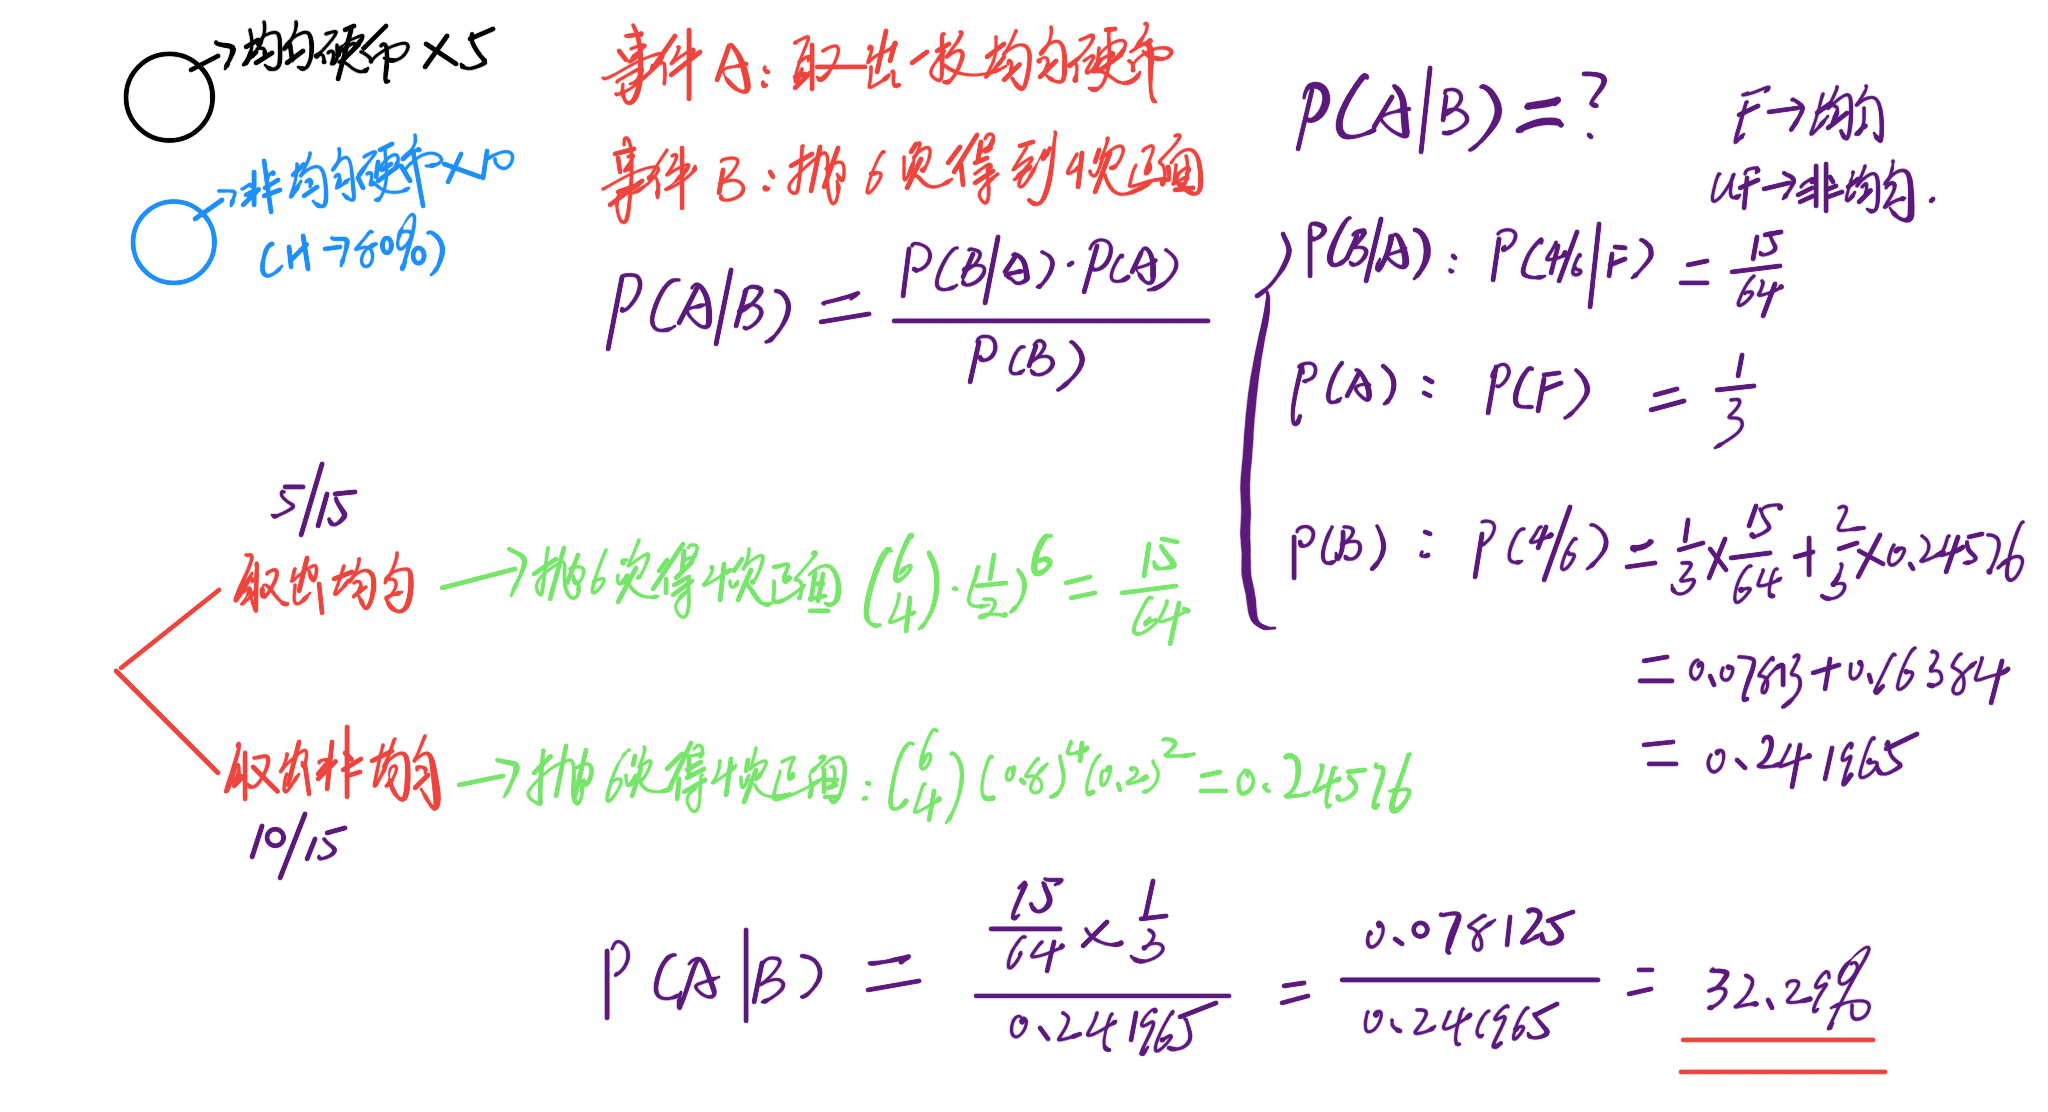 →均匀硬币 ×5
→非均匀硬币×10
(H→80%)
事件 A：取出一枚均匀硬币
事件 B：抛6次得到4次正面
P(A|B)=?
F→均匀
UF→非均匀.
P(A|B) = P(B|A)·P(A) / P(B)
P(B|A)：P(4/6|F) = 15/64
P(A)：P(F) = 1/3
P(B)：P(4/6) = 1/3 × 15/64 + 2/3 × 0.24576
= 0.07813+0.16384
= 0.241965
5/15
取出均匀 → 抛6次得4次正面 (6 4)·(1/2)^6 = 15/64
取出非均匀 → 抛6次得4次正面：(6 4)(0.8)^4(0.2)^2 = 0.24576
10/15
P(A|B) = 15/64 × 1/3 / 0.241965 = 0.078125 / 0.241965 = 32.29%